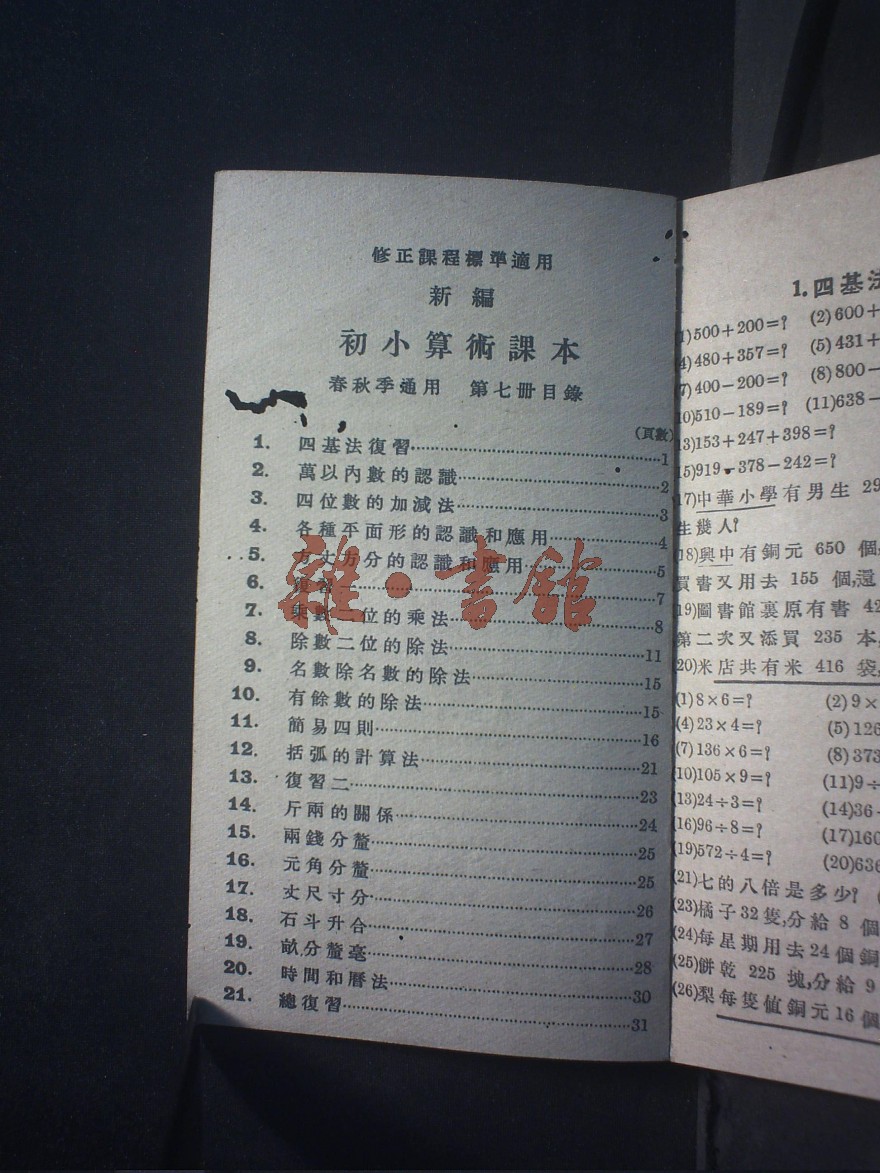 修正課程標準適用
新編
初小算術課本
春秋季通用 第七冊目錄
(頁數)
1. 四基法復習……1
2. 萬以內數的認識……2
3. 四位數的加減法……3
4. 各種平面形的認識和應用……4
5. 方丈方分的認識和應用……5
6. 復習一……7
7. 乘數二位的乘法……8
8. 除數二位的除法……11
9. 名數除名數的除法……15
10. 有餘數的除法……15
11. 簡易四則……16
12. 括弧的計算法……21
13. 復習二……23
14. 斤兩的關係……24
15. 兩錢分釐……25
16. 元角分釐……25
17. 丈尺寸分……26
18. 石斗升合……27
19. 畝分釐毫……28
20. 時間和曆法……30
21. 總復習……31
雜·書館
1.四基法
(1)500+200=? (2)600+
(4)480+357=? (5)431+
(7)400-200=? (8)800-
(10)510-189=? (11)638-
(13)153+247+398=?
(15)919-378-242=?
(17)中華小學有男生 29
生幾人?
(18)興中有銅元 650 個
買書又用去 155 個,還
(19)圖書館裏原有書 42
第二次又添買 235 本,
(20)米店共有米 416 袋,
(1)8×6=? (2)9×
(4)23×4=? (5)126
(7)136×6=? (8)373
(10)105×9=? (11)9÷
(13)24÷3=? (14)36
(16)96÷8=? (17)160
(19)572÷4=? (20)636
(21)七的八倍是多少?
(23)橘子 32隻,分給 8 個
(24)每星期用去24個銅
(25)餅乾 225 塊,分給 9
(26)梨每隻值銅元16個